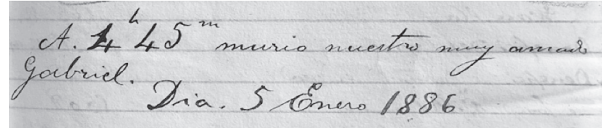 A. 4h 45m murio nuestro muy amado
Gabriel.
Dia. 5 Enero 1886